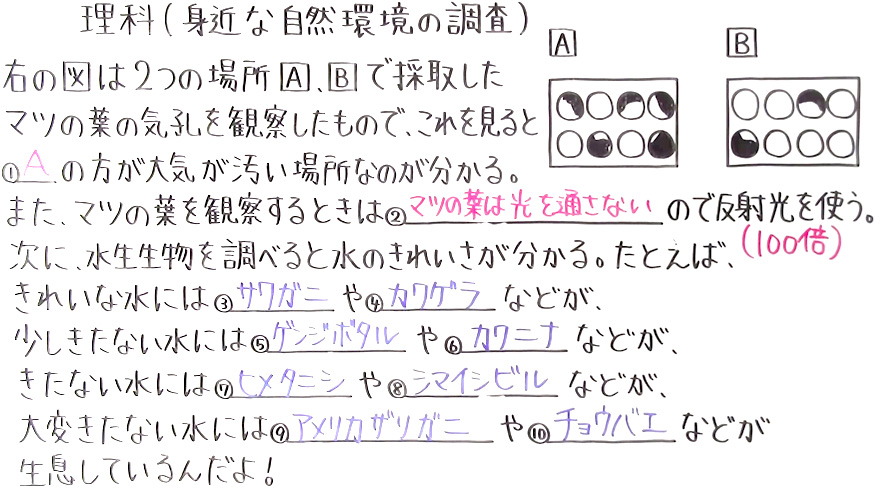 理科(身近な自然環境の調査)
A
B
右の図は2つの場所A、Bで採取した
マツの葉の気孔を観察したもので、これを見ると
①Aの方が大気が汚い場所なのが分かる。
また、マツの葉を観察するときは②マツの葉は光を通さないので反射光を使う。
(100倍)
次に、水生生物を調べると水のきれいさが分かる。たとえば、
きれいな水には③サワガニや④カワゲラなどが、
少しきたない水には⑤ゲンジボタルや⑥カワニナなどが、
きたない水には⑦ヒメタニシや⑧シマイシビルなどが、
大変きたない水には⑨アメリカザリガニや⑩チョウバエなどが
生息しているんだよ!